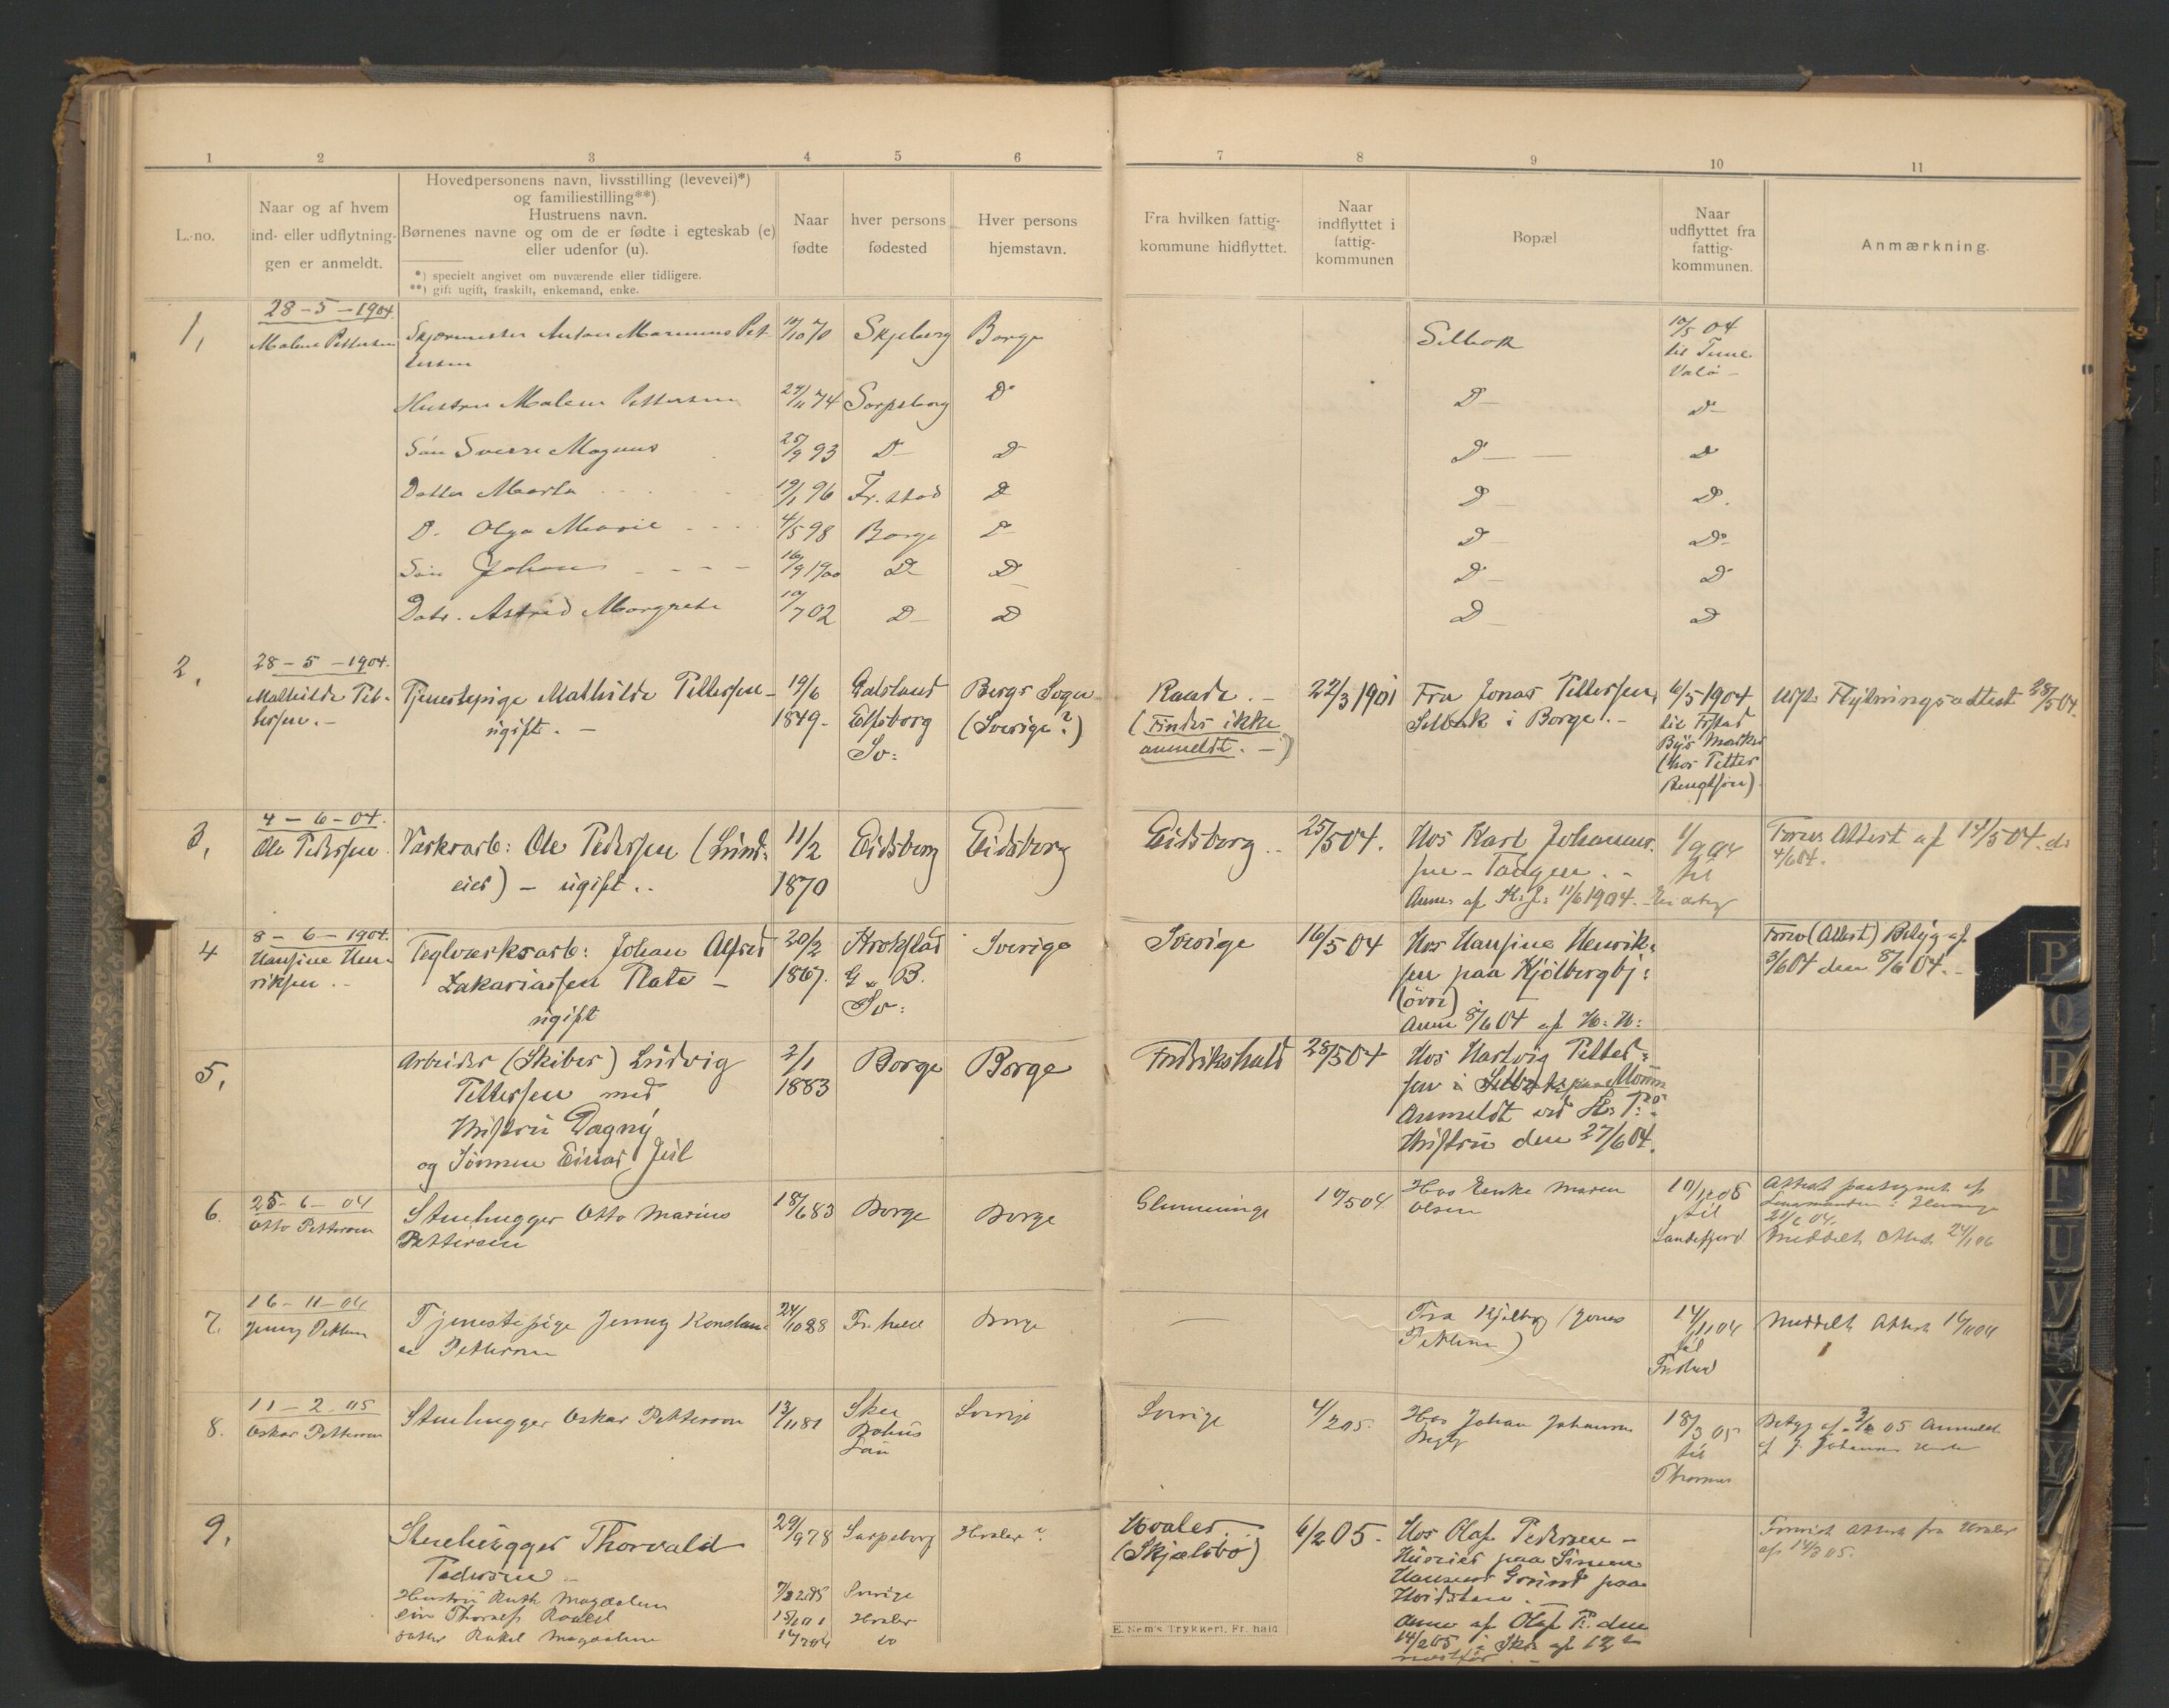 1 2 3 4 5 6 7 8 9 10 11
L.-no.
Naar og af hvem
ind- eller udflytnin-
gen er anmeldt.
Hovedpersonens navn, livsstilling (levevei)*)
og familiestilling**)
Hustruens navn.
Børnenes navne og om de er fødte i egteskab (e)
eller udenfor (u).
*) specielt angivet om nuværende eller tidligere.
**) gift ugift, fraskilt, enkemand, enke.
Naar
fødte
hver persons
fødested
Hver persons
hjemstavn.
Fra hvilken fattig-
kommune hidflyttet.
Naar
indflyttet i
fattig-
kommunen
Bopæl
Naar
udflyttet fra
fattig-
kommunen.
Anmærkning.
1,
28-5-1904.
Malene Pettersen
Anton Marinius Pet-
tersen
70
Skjeberg
Borge
Selbak
10/5 04
til Tune
Valø
Hustru Malene Pettersen 29/11 74 Sarpsborg Do D- D-
Søn Sverre Magnus 25/9 93 D- D D- D
Datter Marta 19/1 96 Fr.stad D D- D.
D. Olga Marie 4/5 98 Borge D- D- Do
Søn Johan 16/9 1900 D D D- D
Datr. Astrid Margrete 10/7 02 D- D D- D
2,
28-5-1904.
Mathilde Pet-
tersen.-
Tjenestepige Mathilde Pettersen-
ugift. -
19/6
1849-
Dalsland
Elfsborg
Sv:
Bergs Sogn
(Sverige?)
Raade.-
(Findes ikke
anmeldt.-)
22/3 1901
Fra Jonas Pettersen,
Selbak i Borge.-
6/5 1904
til Frstad
Bys Marker
(hos Petter
Bengtsen)
Flytningsattest 28/5 04.
3,
4-6-04.
Ole Pedersen.
Værksarb: Ole Pedersen (Lund-
eier) - ugift..
11/2
1870
Eidsberg
Eidsberg
Eidsberg..
25/5 04.
Hos Karl Johannes-
sen - Tangen.-
Anm. af K: J: 11/6 1904.-
1/9 04
til
Eidsberg
Forev. Attest af 14/5 04. d:
4/6 04.
4
8-6-1904.
Hansine Hen-
riksen.-
Teglværksarb: Johan Alfred
Zakariassen Plate -
ugift
20/2
1867.
Krokstad
G. B.
Sv:
Sverige
Sverige
16/5 04
Hos Hansine Henrik-
sen paa Kjölbergbj:
(övre)
Anm 8/6 04 af H: H:
Forev (Attest) Betyg af
3/6 04 den 8/6 04.-
5,
Arbeider (Skiber) Ludvig
Pettersen med
Hustru Dagny
og Sønnen Einar Juil
2/1
1883
Borge
Borge
Fredrikshald
28/5 04
Hos Hartvig Petter-
sen i Selbak, paa Moum
Anmeldt ved H: P:s
Hustru den 27/6 04.
6.
25-6-04
Otto Pettersen
Stenhugger Otto Marius
Pettersen
18/6 83
Borge
Borge
Glemminge
10/5 04
Hos Enke Maren
Olsen
til
Sandefjord
Attest paategnet af
Lensmanden i
21/6 04.
Meddelt Attest 24/1 06
7.
16-11-04
Jenny Pettersen
Tjenestepige Jenny Konstan-
ce Pettersen
24/10 88
Fr. hald
Borge
-
Fra Kjølberg (Jonas
Pettersen)
14/11 04
til
Frstad
Meddelt Attest 16/11 04
8.
11-2-05
Oskar Pettersen
Stenhugger Oskar Pettersson
13/11 81
Skee
Bohus
Län
Sverige
Sverige
4/2 05.
Hos Johan Johansen
18/3 05
til
Betyg af 05 Anmeldt
af J. Johansen
9,
Stenhugger Thorvald
Pedersen -
29/9 78
Sarpsborg
Hvaler?
Hvaler..
(Skjælsbo)
6/2 05.
Hos Olaf Pedersen -
Huseier paa Simen
Hansens Grund paa
Hvidsten.-
Anm af Olaf P. den
14/2 05
Forevist Attest fra Hvaler
af 14/2 05.
Hustru Ruth Magdalene Sverige
Hvaler
datter Rakel Magdalene do
E. Sem's Trykkeri, Fr. hald
P
T
U
V
X
Y